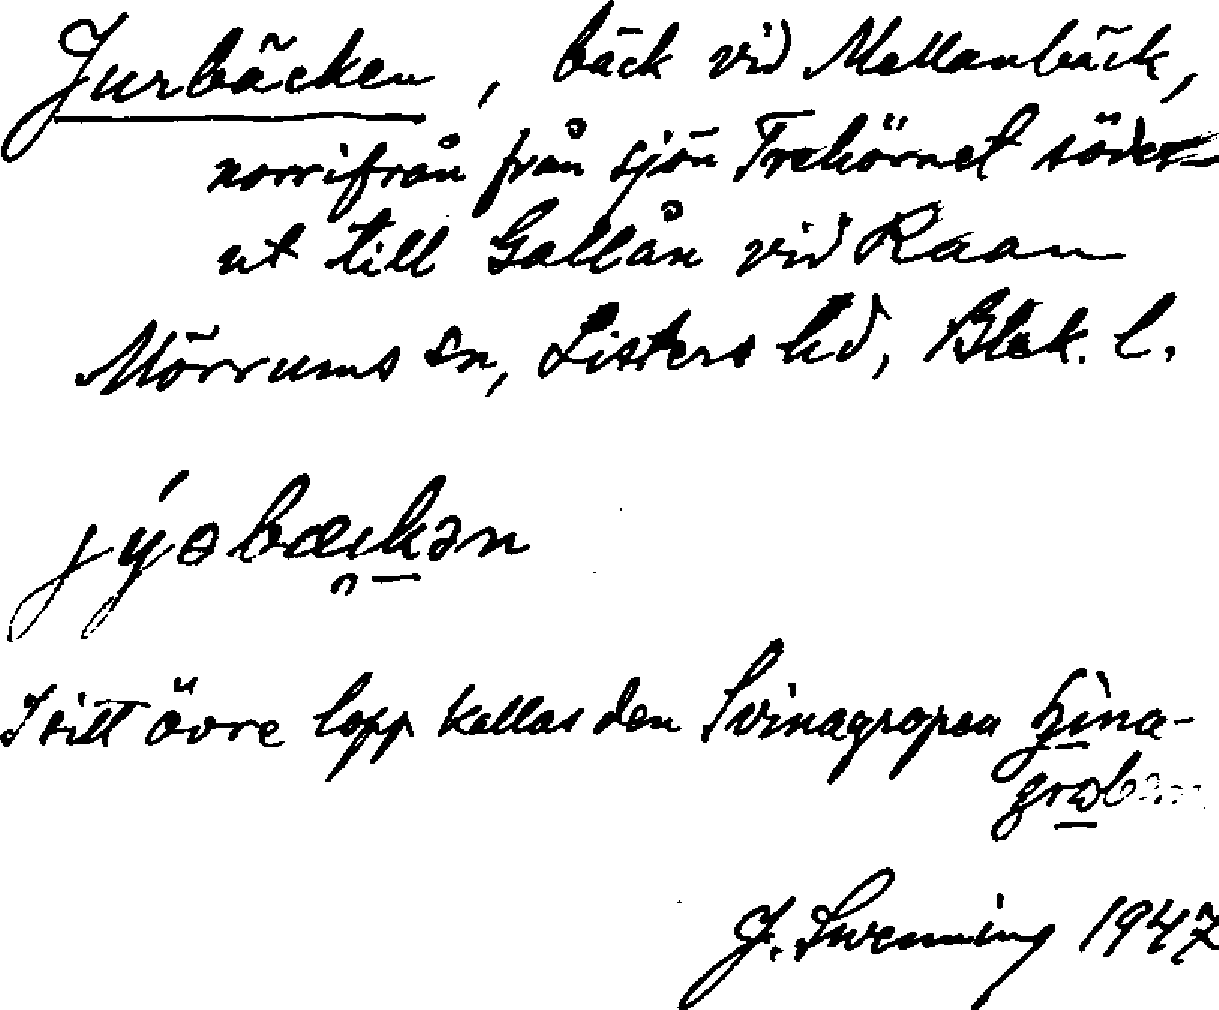 Jurbäcken, bäck vid Mellanbäck,
norrifrån från sjön Trehörnet söder-
ut till Gallån vid Kaan
Mörrums sn, Listers hd, Blek. l.
I sitt övre lopp kallas den Svinagropen
J. Swenning 1947